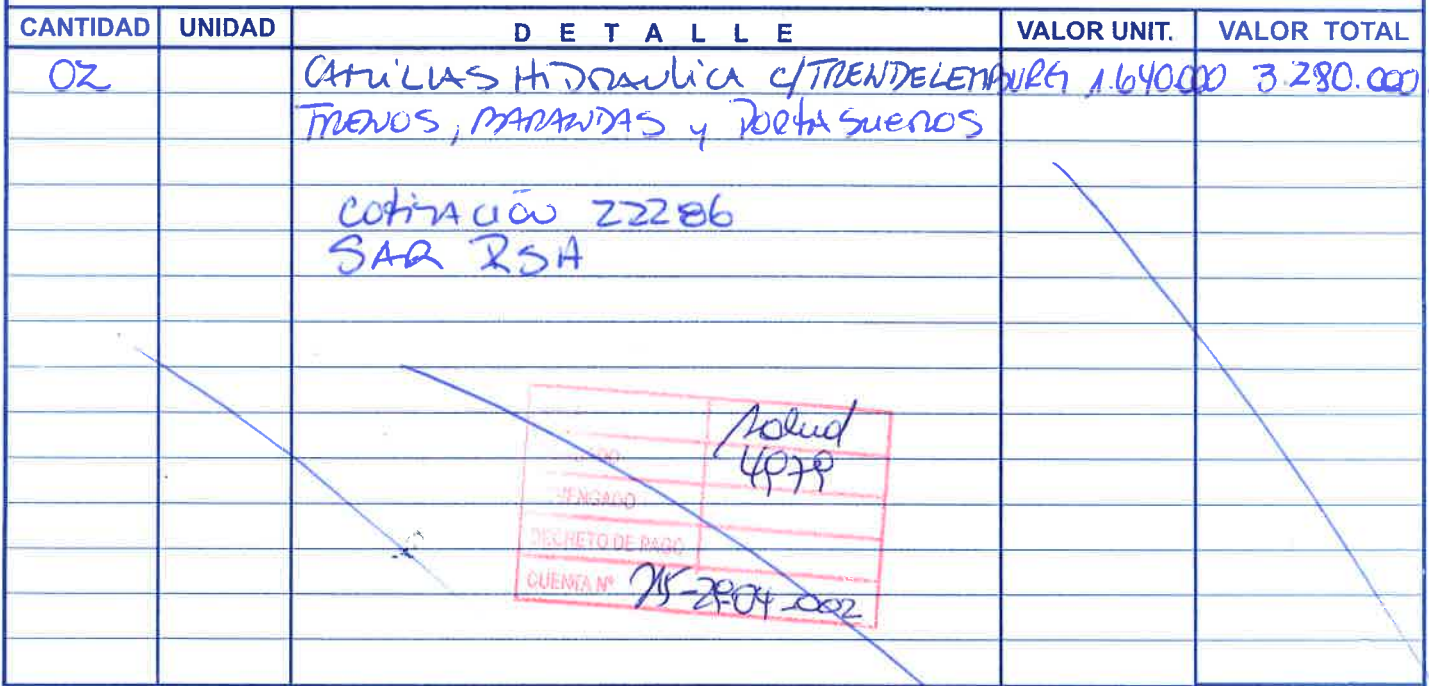 CANTIDAD UNIDAD DETALLE VALOR UNIT. VALOR TOTAL
02 CAMILLAS HIDRAULICA C/TRENDELEMBURG 1.640.000 3.280.000
FRENOS, BARANDAS y PORTA SUEROS
COTIZACIÓN 22286
SAR RSA
Salud
4979
DECRETO DE PAGO
CUENTA Nº 215-2904-002